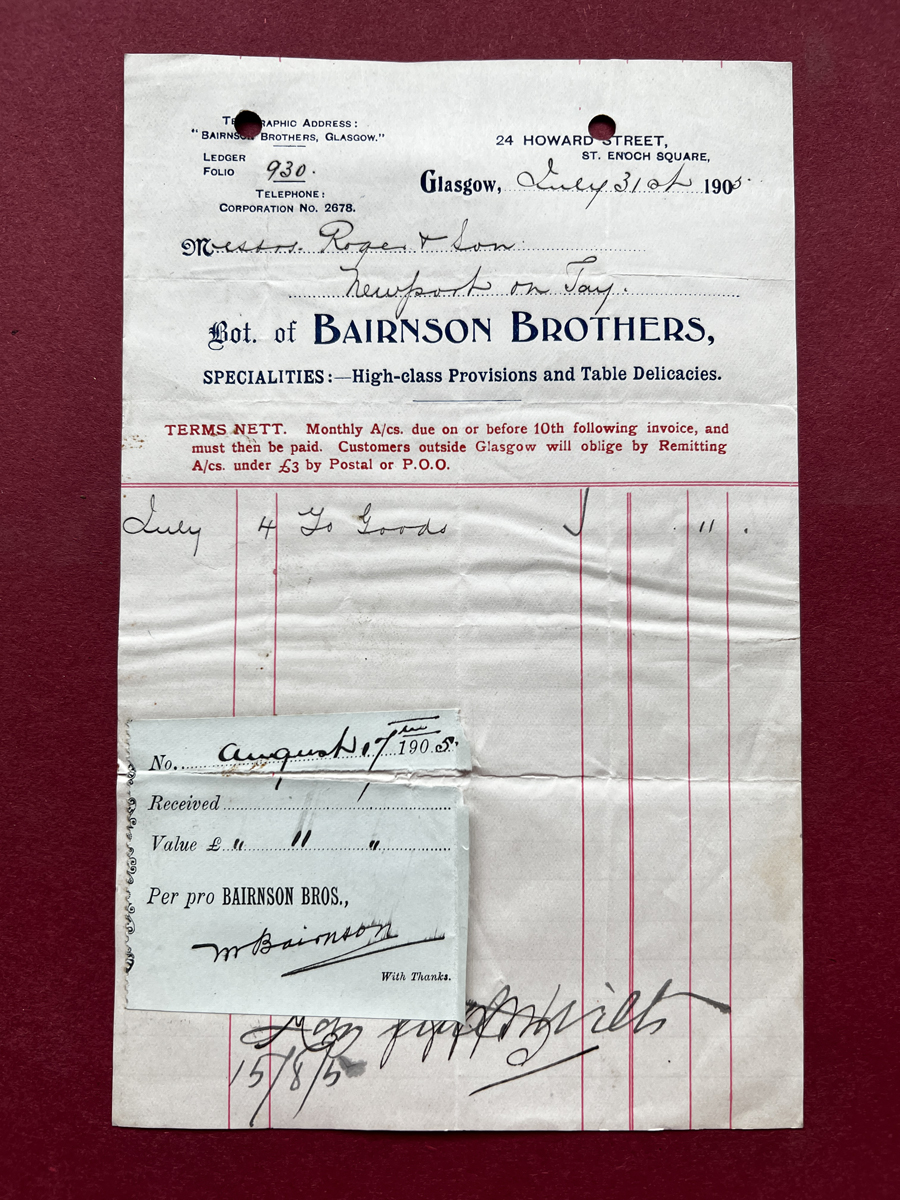 TELEGRAPHIC ADDRESS:
"BAIRNSON BROTHERS, GLASGOW."
LEDGER
FOLIO 930.
TELEPHONE:
CORPORATION NO. 2678.
24 HOWARD STREET,
ST. ENOCH SQUARE,
Glasgow, July 31st 1905.
Messrs. Roger & Son
Newport on Tay.
Bot. of BAIRNSON BROTHERS,
SPECIALITIES:—High-class Provisions and Table Delicacies.
TERMS NETT. Monthly A/cs. due on or before 10th following invoice, and
must then be paid. Customers outside Glasgow will oblige by Remitting
A/cs. under £3 by Postal or P.O.O.
July 4 To Goods 11 .
No. August 17th 1905.
Received
Value £ " 11 "
Per pro BAIRNSON BROS.,
W Bairnson
With Thanks.
15/8/5